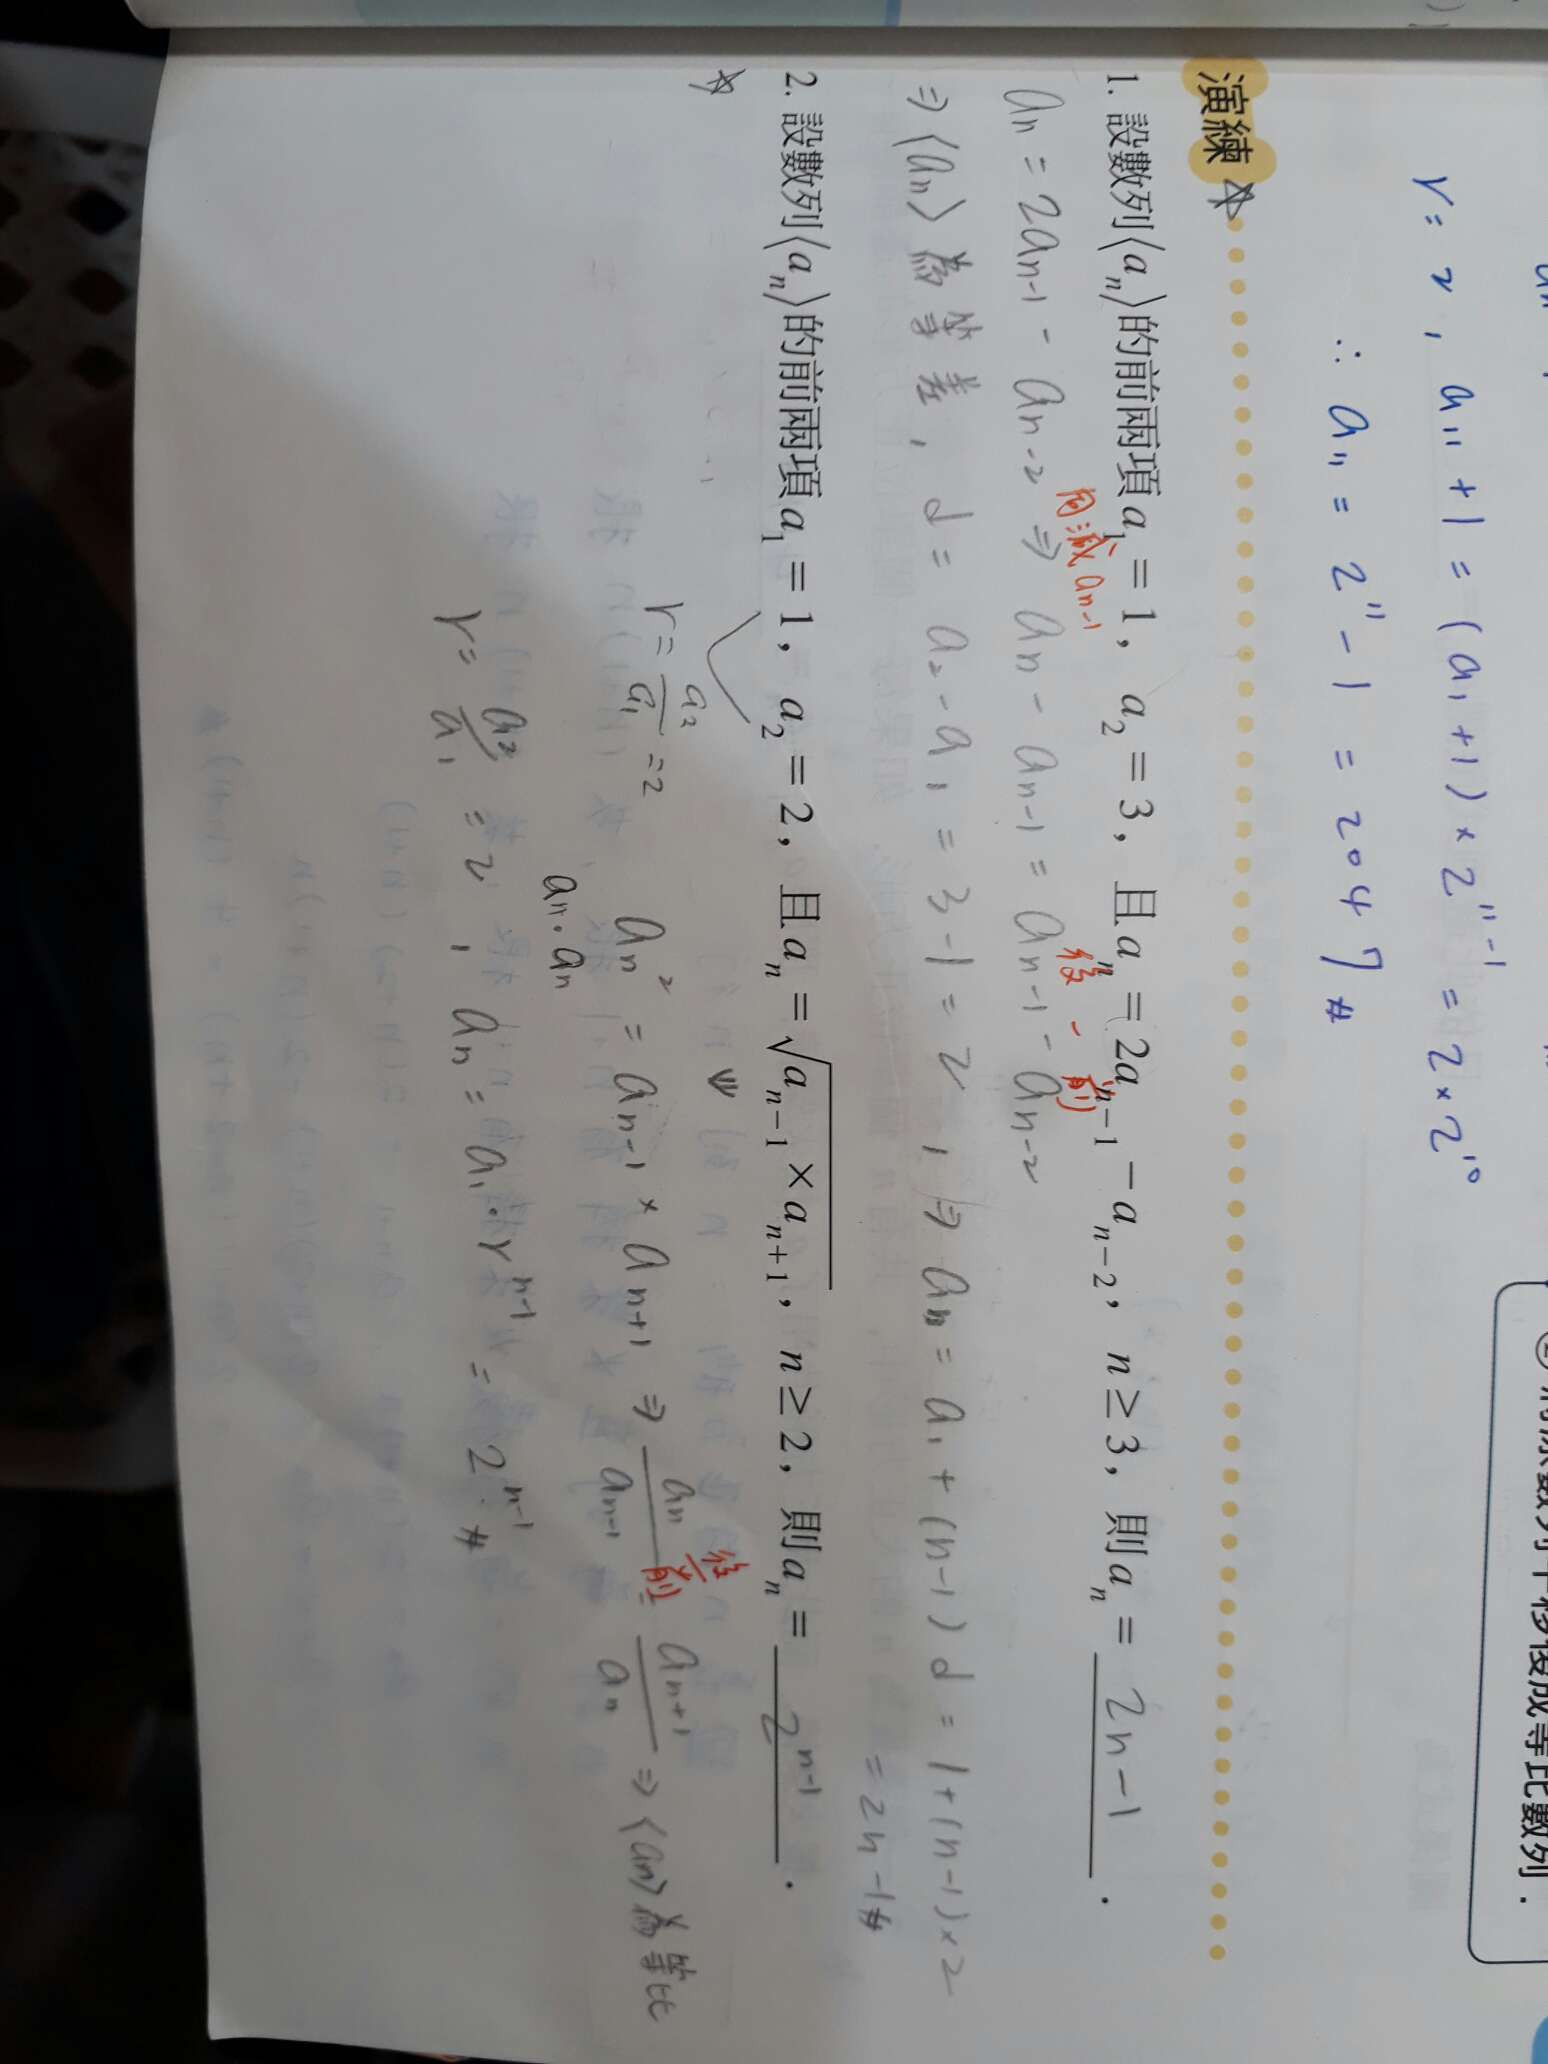 r = 2 , a₁₁ + 1 = (a₁ + 1) × 2¹¹⁻¹ = 2 × 2¹⁰
∴ a₁₁ = 2¹¹ - 1 = 2047 #
數列.
演練 ☆
1. 設數列⟨aₙ⟩的前兩項a₁ = 1, a₂ = 3, 且aₙ = 2aₙ₋₁ − aₙ₋₂, n ≥ 3, 則aₙ = 2n-1 .
同減 aₙ₋₁ 後 - 前
aₙ = 2aₙ₋₁ - aₙ₋₂ ⇒ aₙ - aₙ₋₁ = aₙ₋₁ - aₙ₋₂
⇒ ⟨aₙ⟩ 為等差, d = a₂ - a₁ = 3 - 1 = 2 , ⇒ aₙ = a₁ + (n-1) d = 1 + (n-1) × 2
= 2n - 1 #
2. 設數列⟨aₙ⟩的前兩項a₁ = 1, a₂ = 2, 且aₙ = √(aₙ₋₁ × aₙ₊₁), n ≥ 2, 則aₙ = 2ⁿ⁻¹ .
☆
⇓
後/前
r = a₂/a₁ = 2 aₙ² = aₙ₋₁ × aₙ₊₁ ⇒ aₙ/aₙ₋₁ = aₙ₊₁/aₙ ⇒ ⟨aₙ⟩ 為等比
aₙ · aₙ
r = a₂/a₁ = 2 , aₙ = a₁ · rⁿ⁻¹ = 2ⁿ⁻¹ #